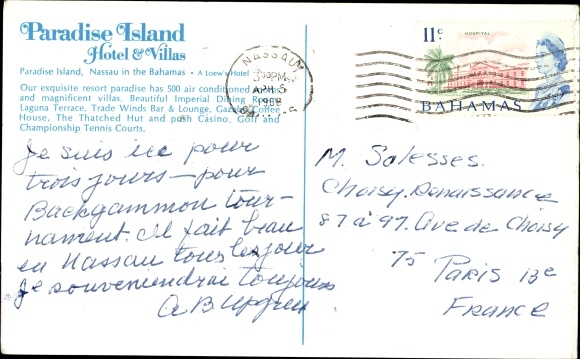 Paradise Island
Hotel & Villas
Paradise Island, Nassau in the Bahamas • A Loew's Hotel
Our exquisite resort paradise has 500 air conditioned rooms
and magnificent villas. Beautiful Imperial Dining Room,
Laguna Terrace, Trade Winds Bar & Lounge, Gazebo Coffee
House, The Thatched Hut and posh Casino, Golf and
Championship Tennis Courts.
NASSAU
PM
APR 5
11c
HOSPITAL
BAHAMAS
Je suis ici pour
trois jours - pour
Backgammon tour-
nament. Il fait beau
en Nassau tous les jour
Je souveniendrai toujours
M. Solesses.
Choisy-Renaissance
87 à 97. Ave de Choisy
75 Paris 13e
France